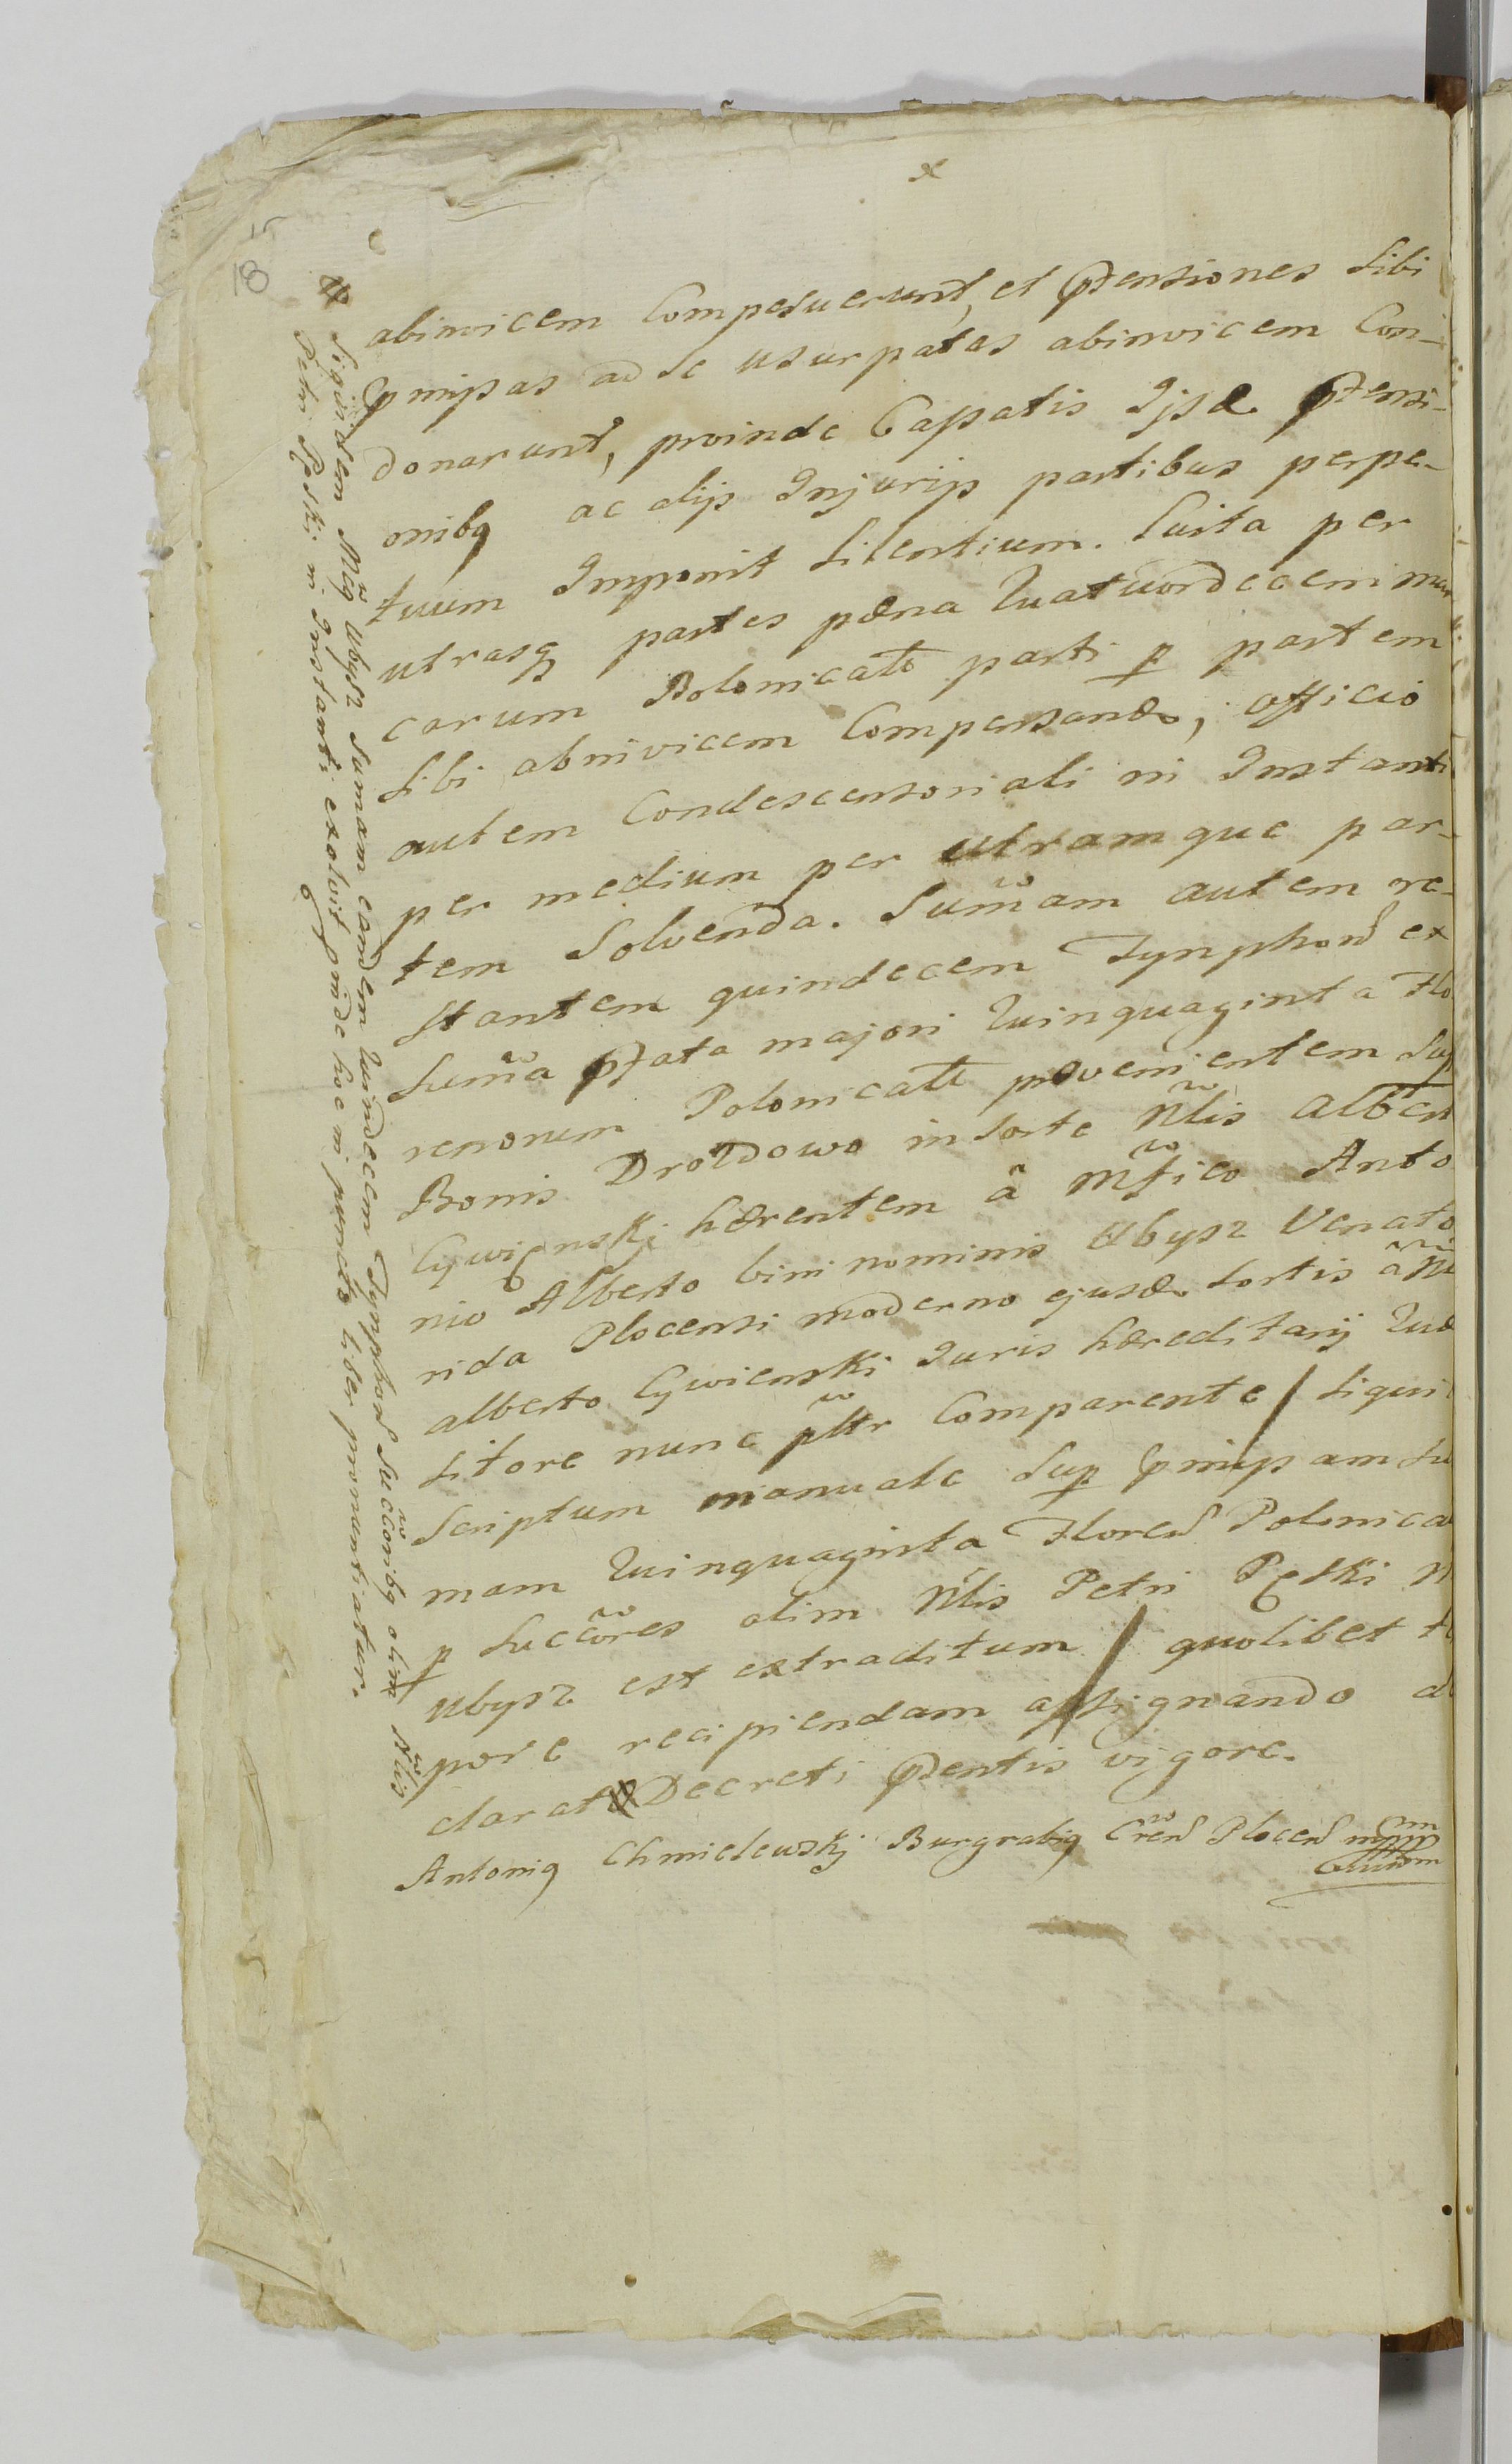 x
18
abinvicem Composuerunt, et ptensiones sibi
pmissas ad se usurpatas abinvicem Con-
donarunt, proinde Cassatis Ijsd. ptensi-
onibq ac alijs Injurijs partibus perpe-
tuum Imponit silentium. Luita per
utrasq partes pæna Quatuordecem mar
carum Polonicalt parti p partem
sibi abinvicem Compensand., officio
autem Condescensoriali in Instanti
per medium per utramque par-
tem Solvenda. Summam autem re-
stantem quindecem Tynphond ex
Summa pfata majori Quinquaginta Flo
renorum Polonicalt provenientem Sup
Bonis Drozdowo in sorte Nlis Albert
Cywiǫnskj hærentem â Mfico Anto
nio Alberto bini nominis Ubysz Venato
rida Plocensi moderno ejusd. sortis â M
alberto Cywienski Juris hæreditarij Quæ
sitore nunc pltr Comparente / siqui
Scriptum manuale Sup pmissam Su
mam Quinquaginta Florend Polonica
p Succores olim Nlis Petri Pęski M
Ubysz est extraditum / quolibet te
pore recipiendam assignando de
clarat Decreti pdentis vigore.
Antoniq Chmielewskj Burgrabiq Crend Plocend mpp
# Siquidem Mcq Ubysz Sumam eandem Quindecem Tynphond Succoribq olim Nlis
Petri Pęski in Instanti exolvit proide hoc in puncto Liber pronuntiatur.